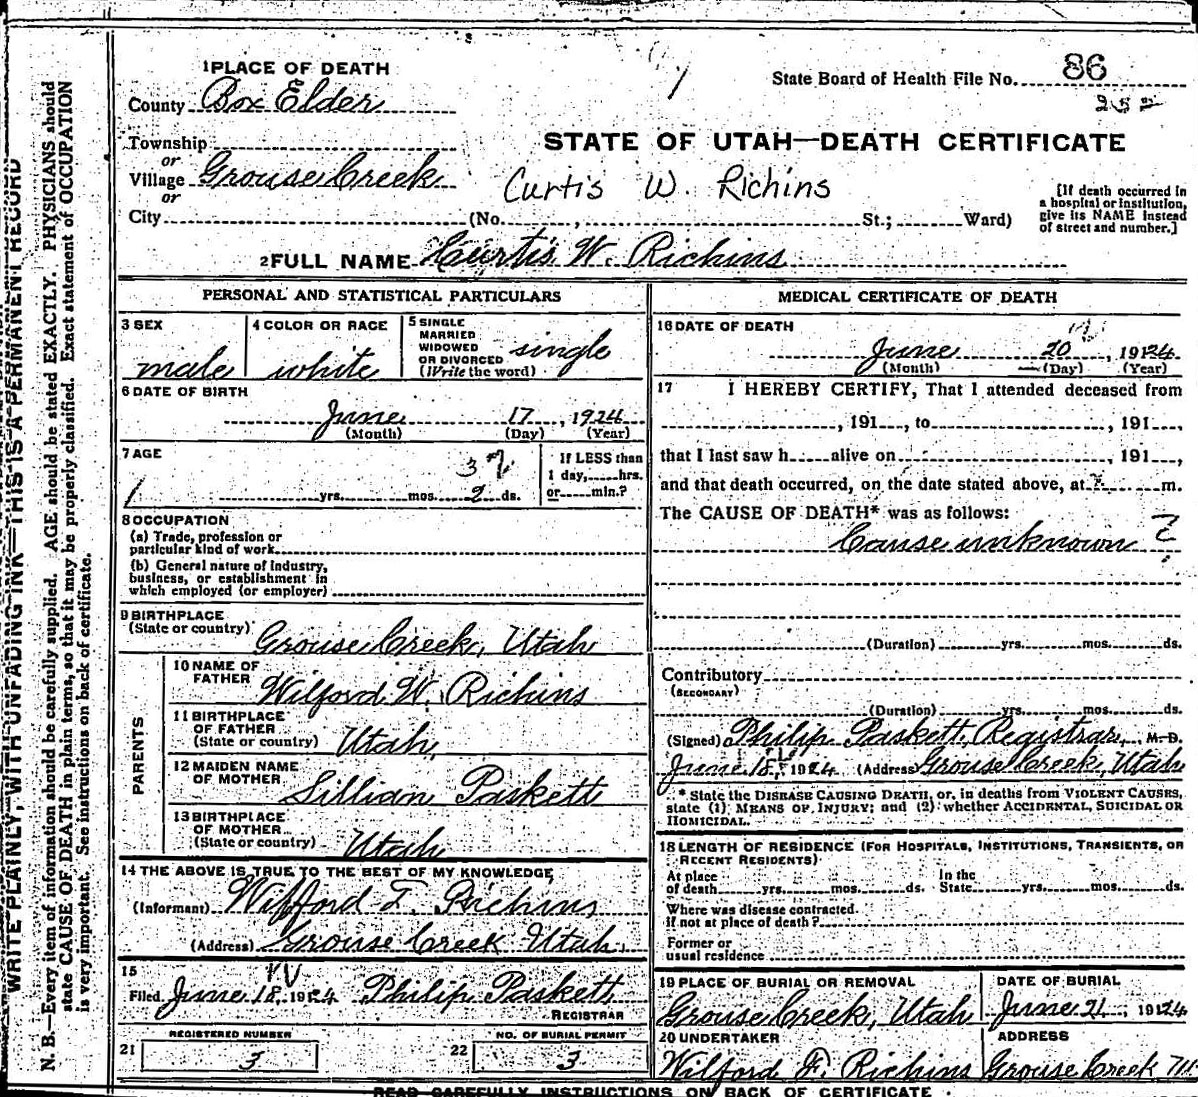 1 PLACE OF DEATH
State Board of Health File No. 86
County Box Elder
STATE OF UTAH—DEATH CERTIFICATE
Township
or
Village Grouse Creek
Curtis W. Richins
or
City (No. , St.; Ward)
[If death occurred in a hospital or institution, give its NAME instead of street and number.]
2 FULL NAME Curtis W. Richins
PERSONAL AND STATISTICAL PARTICULARS
3 SEX
male
4 COLOR OR RACE
white
5 SINGLE
MARRIED
WIDOWED
OR DIVORCED
(Write the word)
single
6 DATE OF BIRTH
June 17, 1924
(Month) (Day) (Year)
7 AGE
yrs. mos. 2 ds.
3
If LESS than
1 day, hrs.
or min.?
8 OCCUPATION
(a) Trade, profession or
particular kind of work
(b) General nature of industry,
business, or establishment in
which employed (or employer)
9 BIRTHPLACE
(State or country) Grouse Creek, Utah
PARENTS
10 NAME OF
FATHER Wilford W. Richins
11 BIRTHPLACE
OF FATHER
(State or country) Utah
12 MAIDEN NAME
OF MOTHER Lillian Paskett
13 BIRTHPLACE
OF MOTHER
(State or country) Utah
14 THE ABOVE IS TRUE TO THE BEST OF MY KNOWLEDGE
(Informant) Wilford F. Richins
(Address) Grouse Creek Utah
15
Filed June 18, 1924 Philip Paskett
REGISTRAR
REGISTERED NUMBER
21 3
NO. OF BURIAL PERMIT
22 3
MEDICAL CERTIFICATE OF DEATH
16 DATE OF DEATH
June 20, 1924
(Month) (Day) (Year)
17 I HEREBY CERTIFY, That I attended deceased from
, 191 , to , 191 ,
that I last saw h alive on , 191 ,
and that death occurred, on the date stated above, at m.
The CAUSE OF DEATH* was as follows:
Cause unknown ?
(Duration) yrs. mos. ds.
Contributory
(SECONDARY)
(Duration) yrs. mos. ds.
(Signed) Philip Paskett, Registrar, M.D.
June 18, 1924 (Address) Grouse Creek, Utah
* State the DISEASE CAUSING DEATH, or, in deaths from VIOLENT CAUSES,
state (1) MEANS OF INJURY; and (2) whether ACCIDENTAL, SUICIDAL OR
HOMICIDAL.
18 LENGTH OF RESIDENCE (FOR HOSPITALS, INSTITUTIONS, TRANSIENTS, OR
RECENT RESIDENTS)
At place
of death yrs. mos. ds. In the State yrs. mos. ds.
Where was disease contracted
if not at place of death?
Former or
usual residence
19 PLACE OF BURIAL OR REMOVAL
Grouse Creek, Utah
DATE OF BURIAL
June 21, 1924
20 UNDERTAKER
Wilford F. Richins
ADDRESS
Grouse Creek
READ CAREFULLY INSTRUCTIONS ON BACK OF CERTIFICATE
WRITE PLAINLY, WITH UNFADING INK—THIS IS A PERMANENT RECORD
N. B.—Every item of information should be carefully supplied. AGE should be stated EXACTLY. PHYSICIANS should
state CAUSE OF DEATH in plain terms, so that it may be properly classified. Exact statement of OCCUPATION
is very important. See instructions on back of certificate.